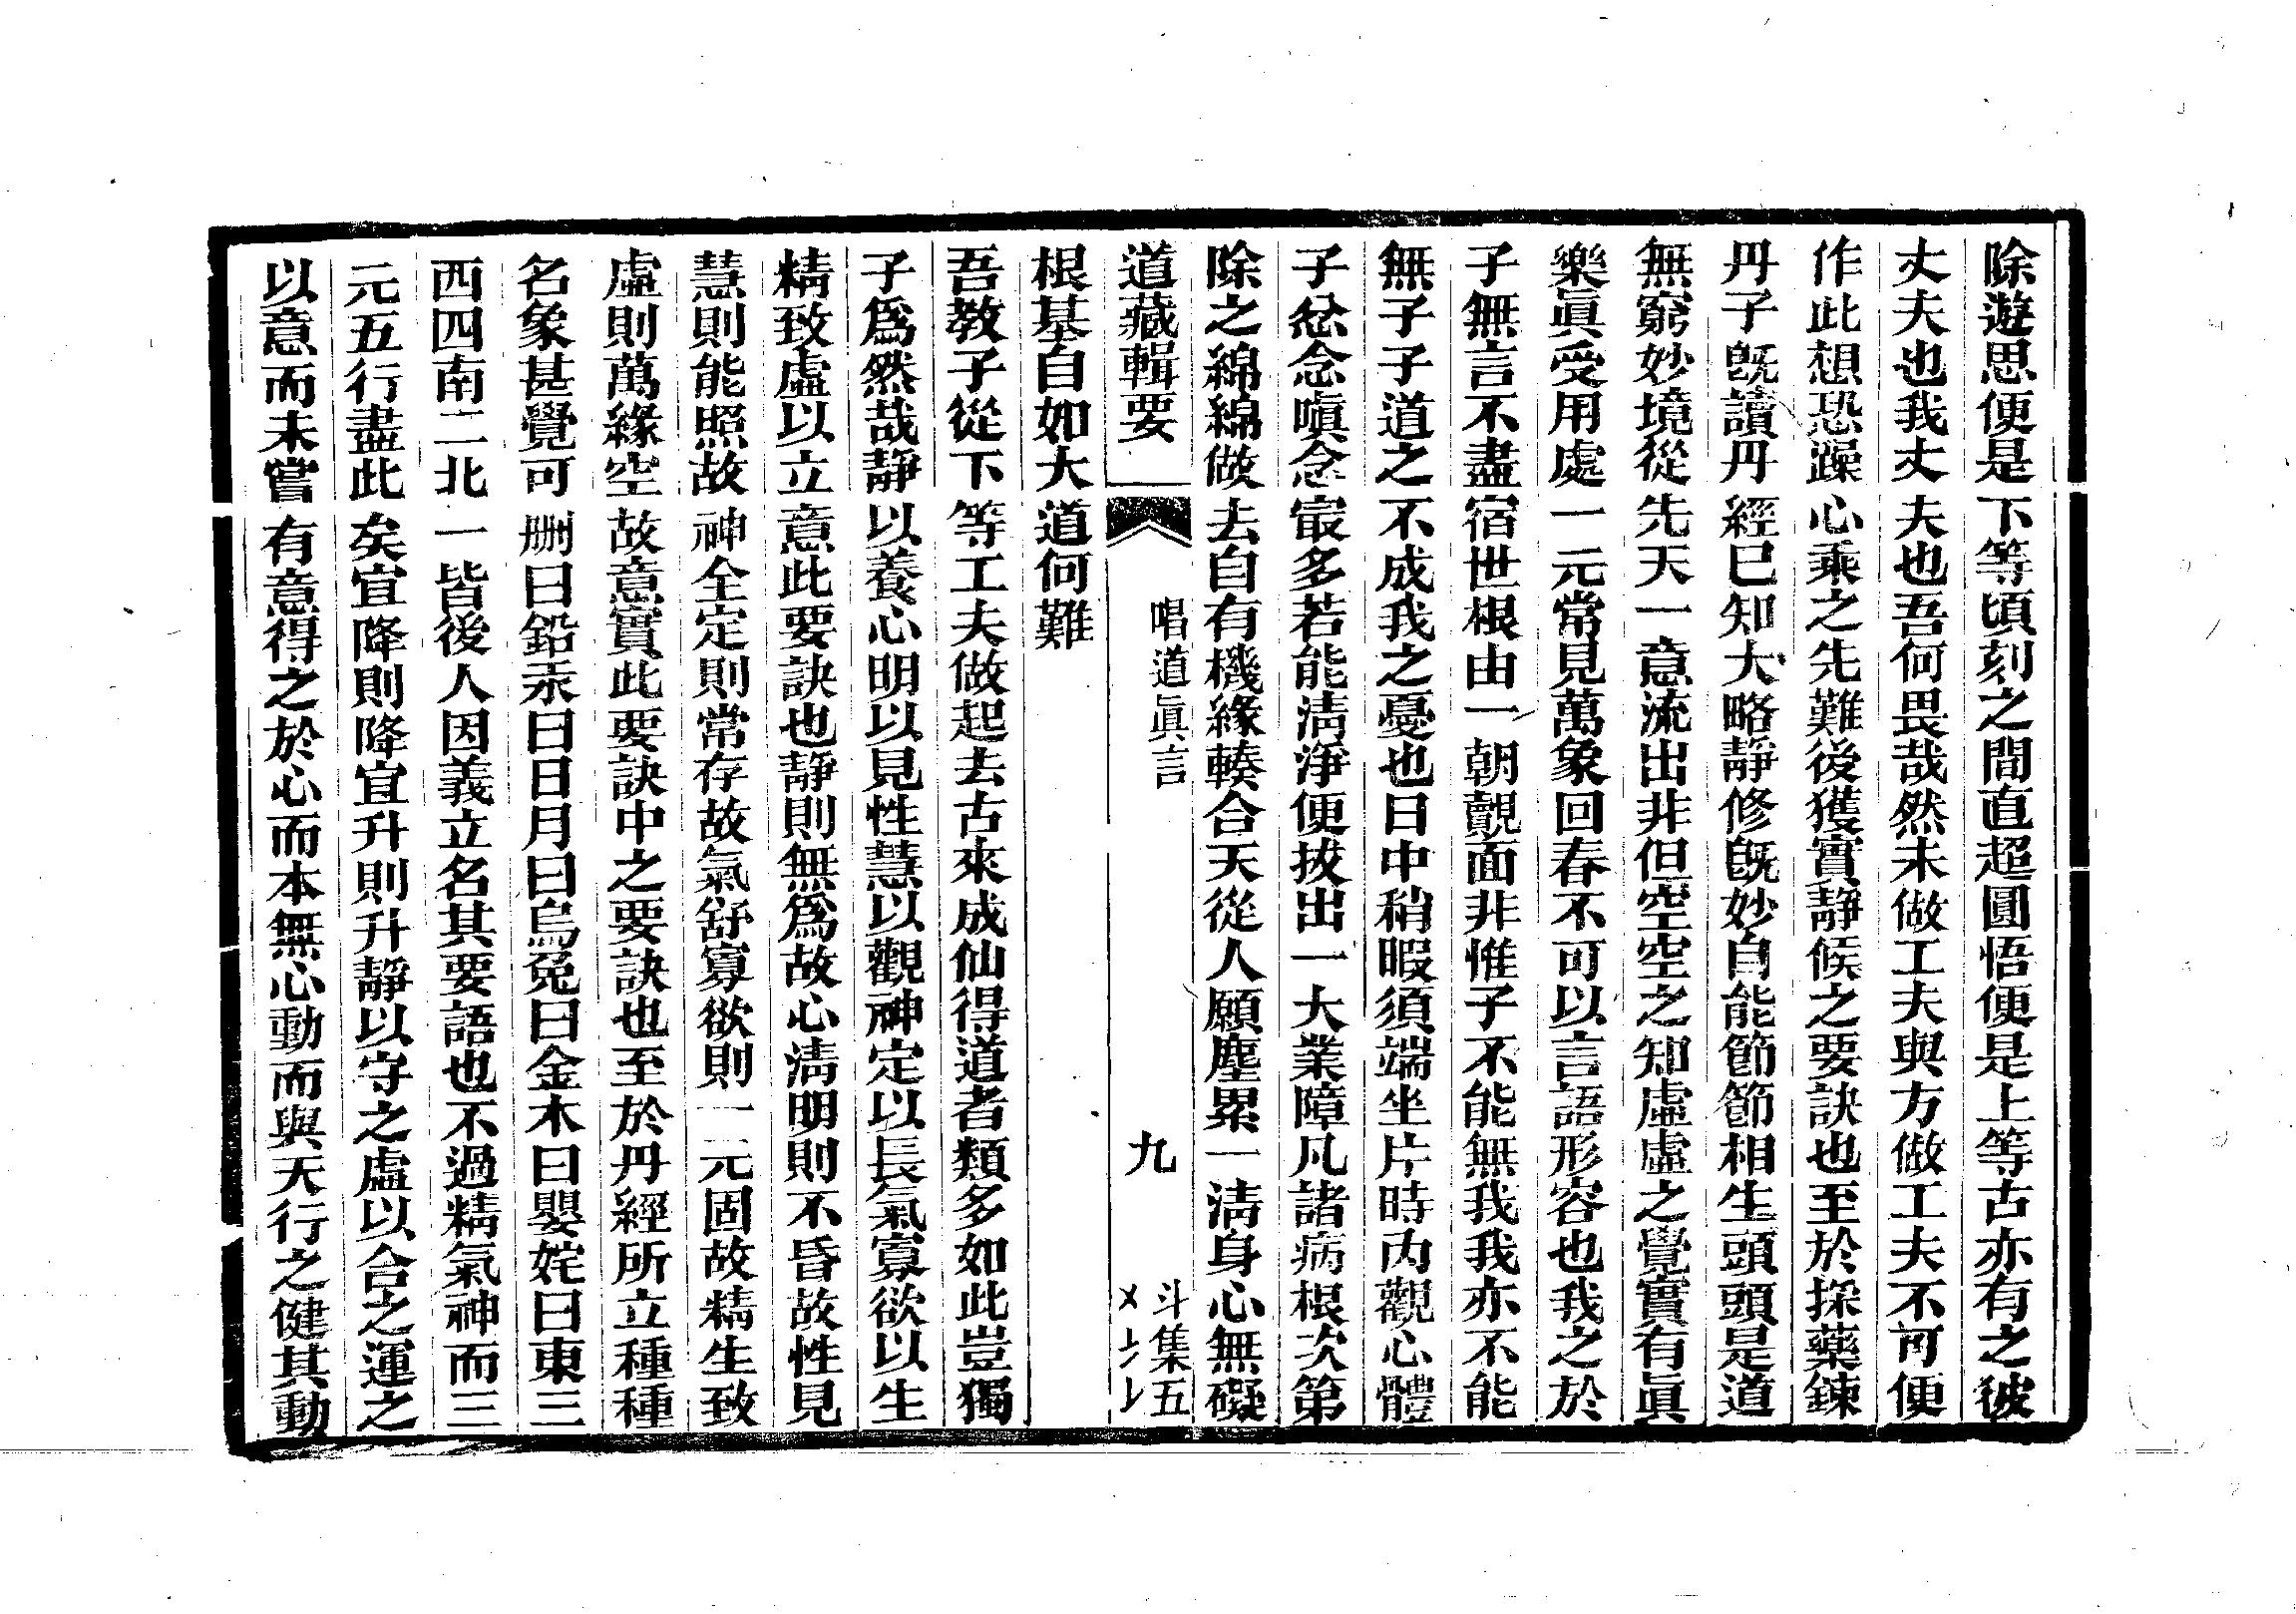 除遊思便是下等頃刻之間直超圓悟便是上等古亦有之彼
丈夫也我丈夫也吾何畏哉然未做工夫與方做工夫不可便
作此想恐躁心乘之先難後獲實靜候之要訣也至於採藥鍊
丹子旣讀丹經已知大略靜修旣妙自能節節相生頭頭是道
無窮妙境從先天一意流出非但空空之知虛虛之覺實有眞
樂眞受用處一元常見萬象回春不可以言語形容也我之於
子無言不盡宿世根由一朝覿面非惟子不能無我我亦不能
無子子道之不成我之憂也日中稍暇須端坐片時內觀心體
子忿念嗔念㝡多若能淸淨便拔出一大業障凡諸病根次第
除之綿綿做去自有機緣輳合天從人願塵累一淸身心無礙
道藏輯要
唱道眞言
九
斗集五
根基自如大道何難
吾教子從下等工夫做起去古來成仙得道者類多如此豈獨
子爲然哉靜以養心明以見性慧以觀神定以長氣寡欲以生
精致虛以立意此要訣也靜則無爲故心淸明則不昏故性見
慧則能照故神全定則常存故氣舒寡欲則一元固故精生致
虛則萬緣空故意實此要訣中之要訣也至於丹經所立種種
名象甚覺可删曰鉛汞曰日月曰烏兔曰金木曰嬰姹曰東三
西四南二北一皆後人因義立名其要語也不過精氣神而三
元五行盡此矣宜降則降宜升則升靜以守之虛以合之運之
以意而未嘗有意得之於心而本無心動而與天行之健其動